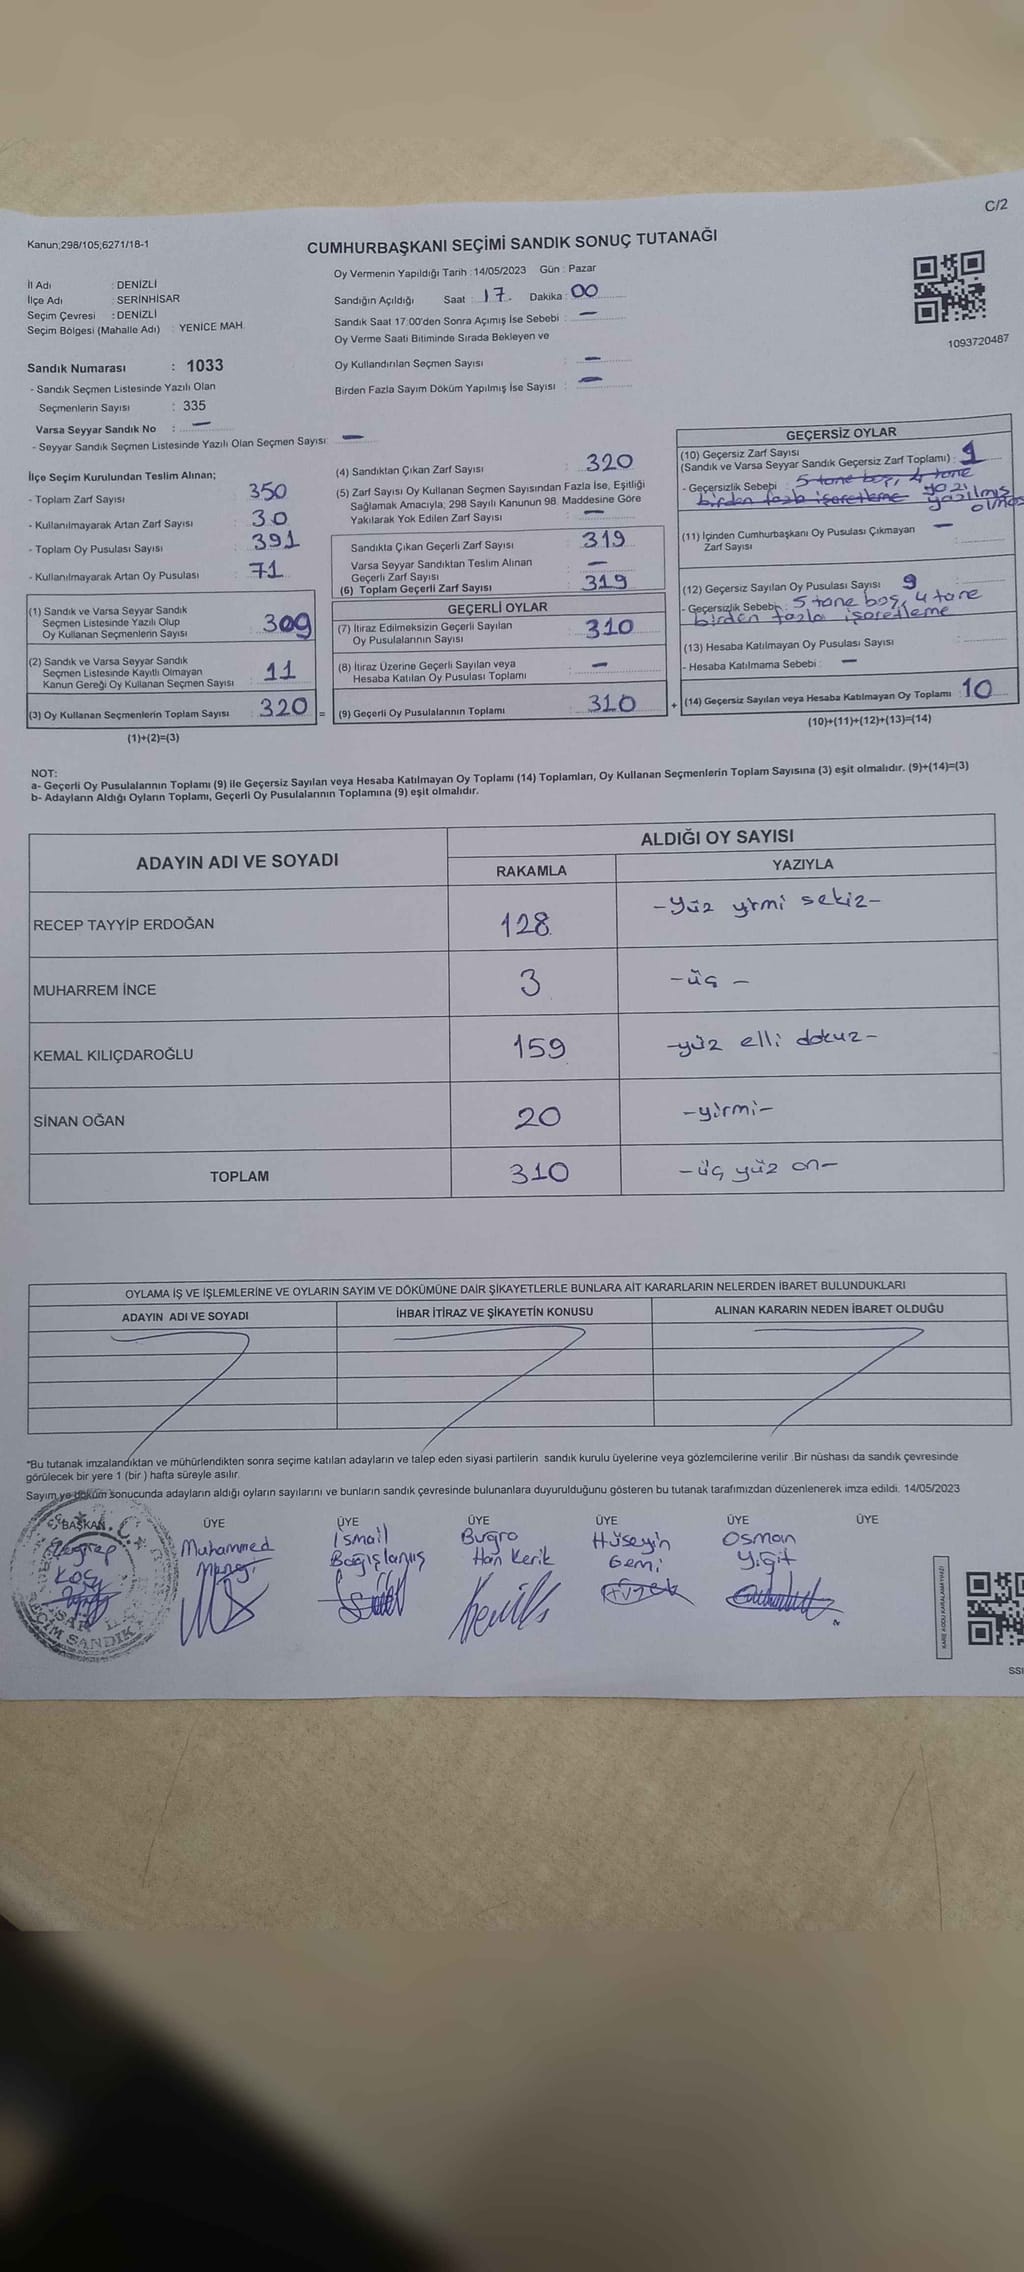 C/2
Kanun;298/105;6271/18-1
CUMHURBAŞKANI SEÇİMİ SANDIK SONUÇ TUTANAĞI
İl Adı : DENİZLİ
İlçe Adı : SERİNHİSAR
Seçim Çevresi : DENİZLİ
Seçim Bölgesi (Mahalle Adı) : YENİCE MAH.
Sandık Numarası : 1033
- Sandık Seçmen Listesinde Yazılı Olan
Seçmenlerin Sayısı : 335
Varsa Seyyar Sandık No : —
- Seyyar Sandık Seçmen Listesinde Yazılı Olan Seçmen Sayısı: —
Oy Vermenin Yapıldığı Tarih : 14/05/2023 Gün : Pazar
Sandığın Açıldığı Saat : 17. Dakika : 00
Sandık Saat 17:00'den Sonra Açımış İse Sebebi : —
Oy Verme Saati Bitiminde Sırada Bekleyen ve
Oy Kullandırılan Seçmen Sayısı : —
Birden Fazla Sayım Döküm Yapılmış İse Sayısı : —
1093720487
İlçe Seçim Kurulundan Teslim Alınan;
- Toplam Zarf Sayısı : 350
- Kullanılmayarak Artan Zarf Sayısı : 30
- Toplam Oy Pusulası Sayısı : 391
- Kullanılmayarak Artan Oy Pusulası : 71
(1) Sandık ve Varsa Seyyar Sandık
Seçmen Listesinde Yazılı Olup
Oy Kullanan Seçmenlerin Sayısı : 309
(2) Sandık ve Varsa Seyyar Sandık
Seçmen Listesinde Kayıtlı Olmayan
Kanun Gereği Oy Kullanan Seçmen Sayısı : 11
(3) Oy Kullanan Seçmenlerin Toplam Sayısı : 320 =
(1)+(2)=(3)
(4) Sandıktan Çıkan Zarf Sayısı : 320
(5) Zarf Sayısı Oy Kullanan Seçmen Sayısından Fazla İse, Eşitliği
Sağlamak Amacıyla; 298 Sayılı Kanunun 98. Maddesine Göre
Yakılarak Yok Edilen Zarf Sayısı : —
Sandıkta Çıkan Geçerli Zarf Sayısı : 319
Varsa Seyyar Sandıktan Teslim Alınan
Geçerli Zarf Sayısı : —
(6) Toplam Geçerli Zarf Sayısı : 319
GEÇERLİ OYLAR
(7) İtiraz Edilmeksizin Geçerli Sayılan
Oy Pusulalarının Sayısı : 310
(8) İtiraz Üzerine Geçerli Sayılan veya
Hesaba Katılan Oy Pusulası Toplamı : —
(9) Geçerli Oy Pusulalarının Toplamı : 310 +
GEÇERSİZ OYLAR
(10) Geçersiz Zarf Sayısı
(Sandık ve Varsa Seyyar Sandık Geçersiz Zarf Toplamı) : 1
- Geçersizlik Sebebi : 5 tane boş, 4 tane
birden fazla işaretleme yazı
yazılmış
olması
(11) İçinden Cumhurbaşkanı Oy Pusulası Çıkmayan
Zarf Sayısı : —
(12) Geçersiz Sayılan Oy Pusulası Sayısı : 9
- Geçersizlik Sebebi : 5 tane boş, 4 tane
birden fazla işaretleme
(13) Hesaba Katılmayan Oy Pusulası Sayısı
- Hesaba Katılmama Sebebi : —
(14) Geçersiz Sayılan veya Hesaba Katılmayan Oy Toplamı : 10
(10)+(11)+(12)+(13)=(14)
NOT:
a- Geçerli Oy Pusulalarının Toplamı (9) ile Geçersiz Sayılan veya Hesaba Katılmayan Oy Toplamı (14) Toplamları, Oy Kullanan Seçmenlerin Toplam Sayısına (3) eşit olmalıdır. (9)+(14)=(3)
b- Adayların Aldığı Oyların Toplamı, Geçerli Oy Pusulalarının Toplamına (9) eşit olmalıdır.
ADAYIN ADI VE SOYADI
ALDIĞI OY SAYISI
RAKAMLA YAZIYLA
RECEP TAYYİP ERDOĞAN 128 -yüz yirmi sekiz-
MUHARREM İNCE 3 -üç-
KEMAL KILIÇDAROĞLU 159 -yüz elli dokuz-
SİNAN OĞAN 20 -yirmi-
TOPLAM 310 -üç yüz on-
OYLAMA İŞ VE İŞLEMLERİNE VE OYLARIN SAYIM VE DÖKÜMÜNE DAİR ŞİKAYETLERLE BUNLARA AİT KARARLARIN NELERDEN İBARET BULUNDUKLARI
ADAYIN ADI VE SOYADI İHBAR İTİRAZ VE ŞİKAYETİN KONUSU ALINAN KARARIN NEDEN İBARET OLDUĞU
*Bu tutanak imzalandıktan ve mühürlendikten sonra seçime katılan adayların ve talep eden siyasi partilerin sandık kurulu üyelerine veya gözlemcilerine verilir .Bir nüshası da sandık çevresinde
görülecek bir yere 1 (bir ) hafta süreyle asılır.
Sayım ve döküm sonucunda adayların aldığı oyların sayılarını ve bunların sandık çevresinde bulunanlara duyurulduğunu gösteren bu tutanak tarafımızdan düzenlenerek imza edildi. 14/05/2023
BAŞKAN ÜYE ÜYE ÜYE ÜYE ÜYE ÜYE
Zeynep Koç
Muhammed
İsmail Bağışlamış
Buğra Han Kerik
Hüseyin Gemi
Osman Yiğit
SEÇİM SANDIK
KARE KODU KARALAMAYINIZ!
SSI